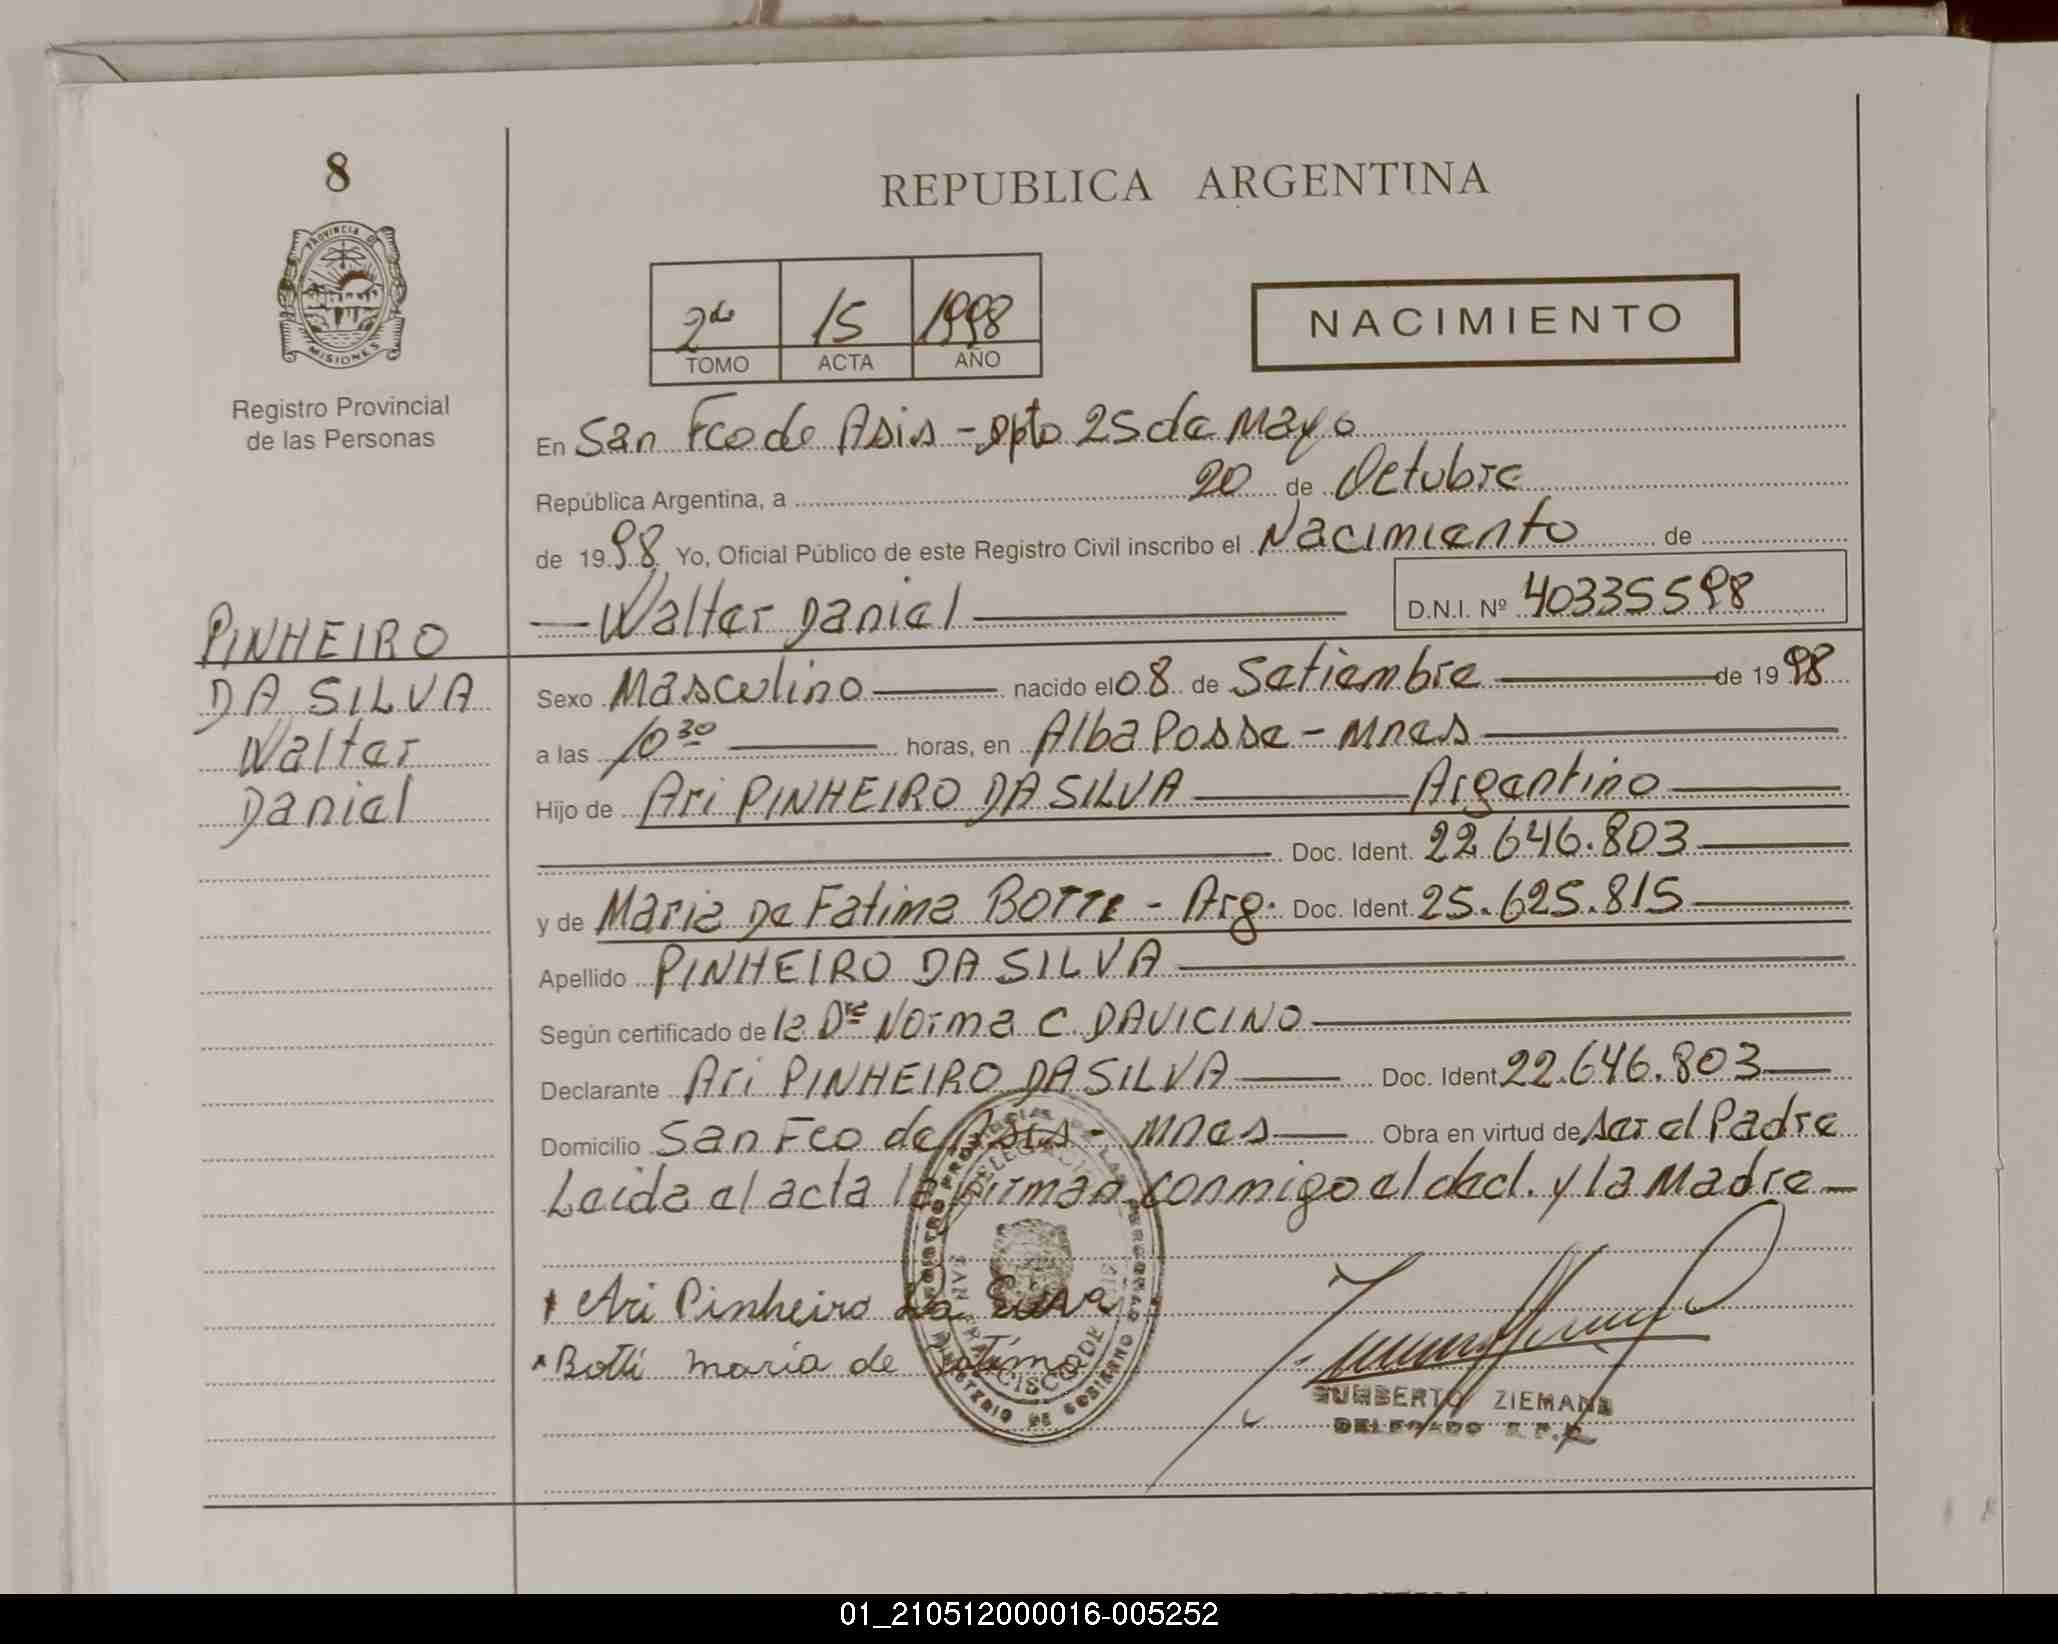 8
PROVINCIA DE
MISIONES
Registro Provincial
de las Personas
PINHEIRO
DA SILVA
Walter
Daniel
REPUBLICA ARGENTINA
2do 15 1998
TOMO ACTA AÑO
NACIMIENTO
En San Fco de Asis - Dpto 25 de Mayo
República Argentina, a 20 de Octubre
de 1998 Yo, Oficial Público de este Registro Civil inscribo el Nacimiento de
Walter Daniel D.N.I. Nº 40335598
Sexo Masculino nacido el 08 de Setiembre de 1998
a las 10 30 horas, en Alba Posse - Mnes
Hijo de Ari PINHEIRO DA SILVA Argentino
Doc. Ident. 22.646.803
y de Maria De Fatima BOTTI - Arg. Doc. Ident. 25.625.815
Apellido PINHEIRO DA SILVA
Según certificado de la Dra Norma C. DAVICINO
Declarante Ari PINHEIRO DA SILVA Doc. Ident 22.646.803
Domicilio San Fco de Asis - Mnes Obra en virtud de ser el Padre
Leida el acta la firman conmigo el decl. y la Madre
Ari Pinheiro da Silva
Botti maria de Fatima
HUMBERTO ZIEMANN
DELEGADO R.P.P.
01_210512000016-005252